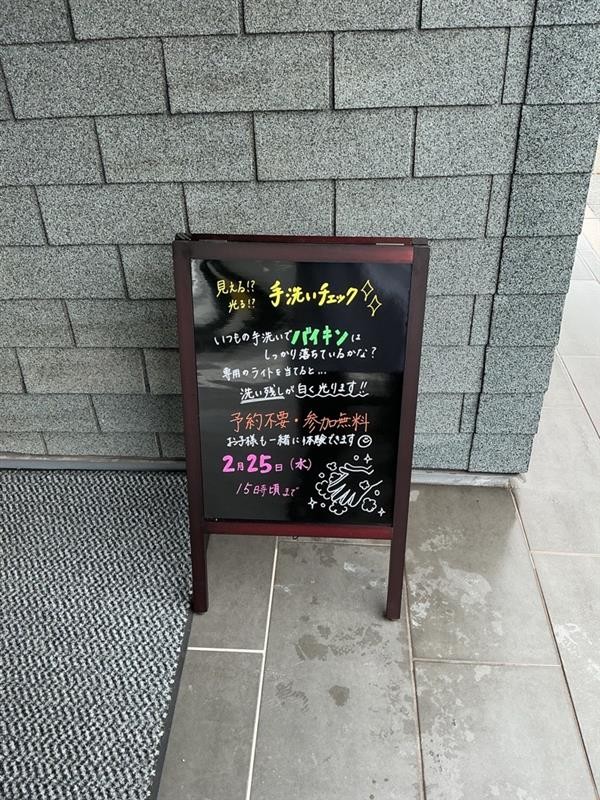 見える!?
光る!?
手洗いチェック
いつもの手洗いでバイキンは
しっかり落ちているかな?
専用のライトを当てると...
洗い残しが白く光ります!!
予約不要・参加無料
お子様も一緒に体験できます
2月25日(水)
15時頃まで